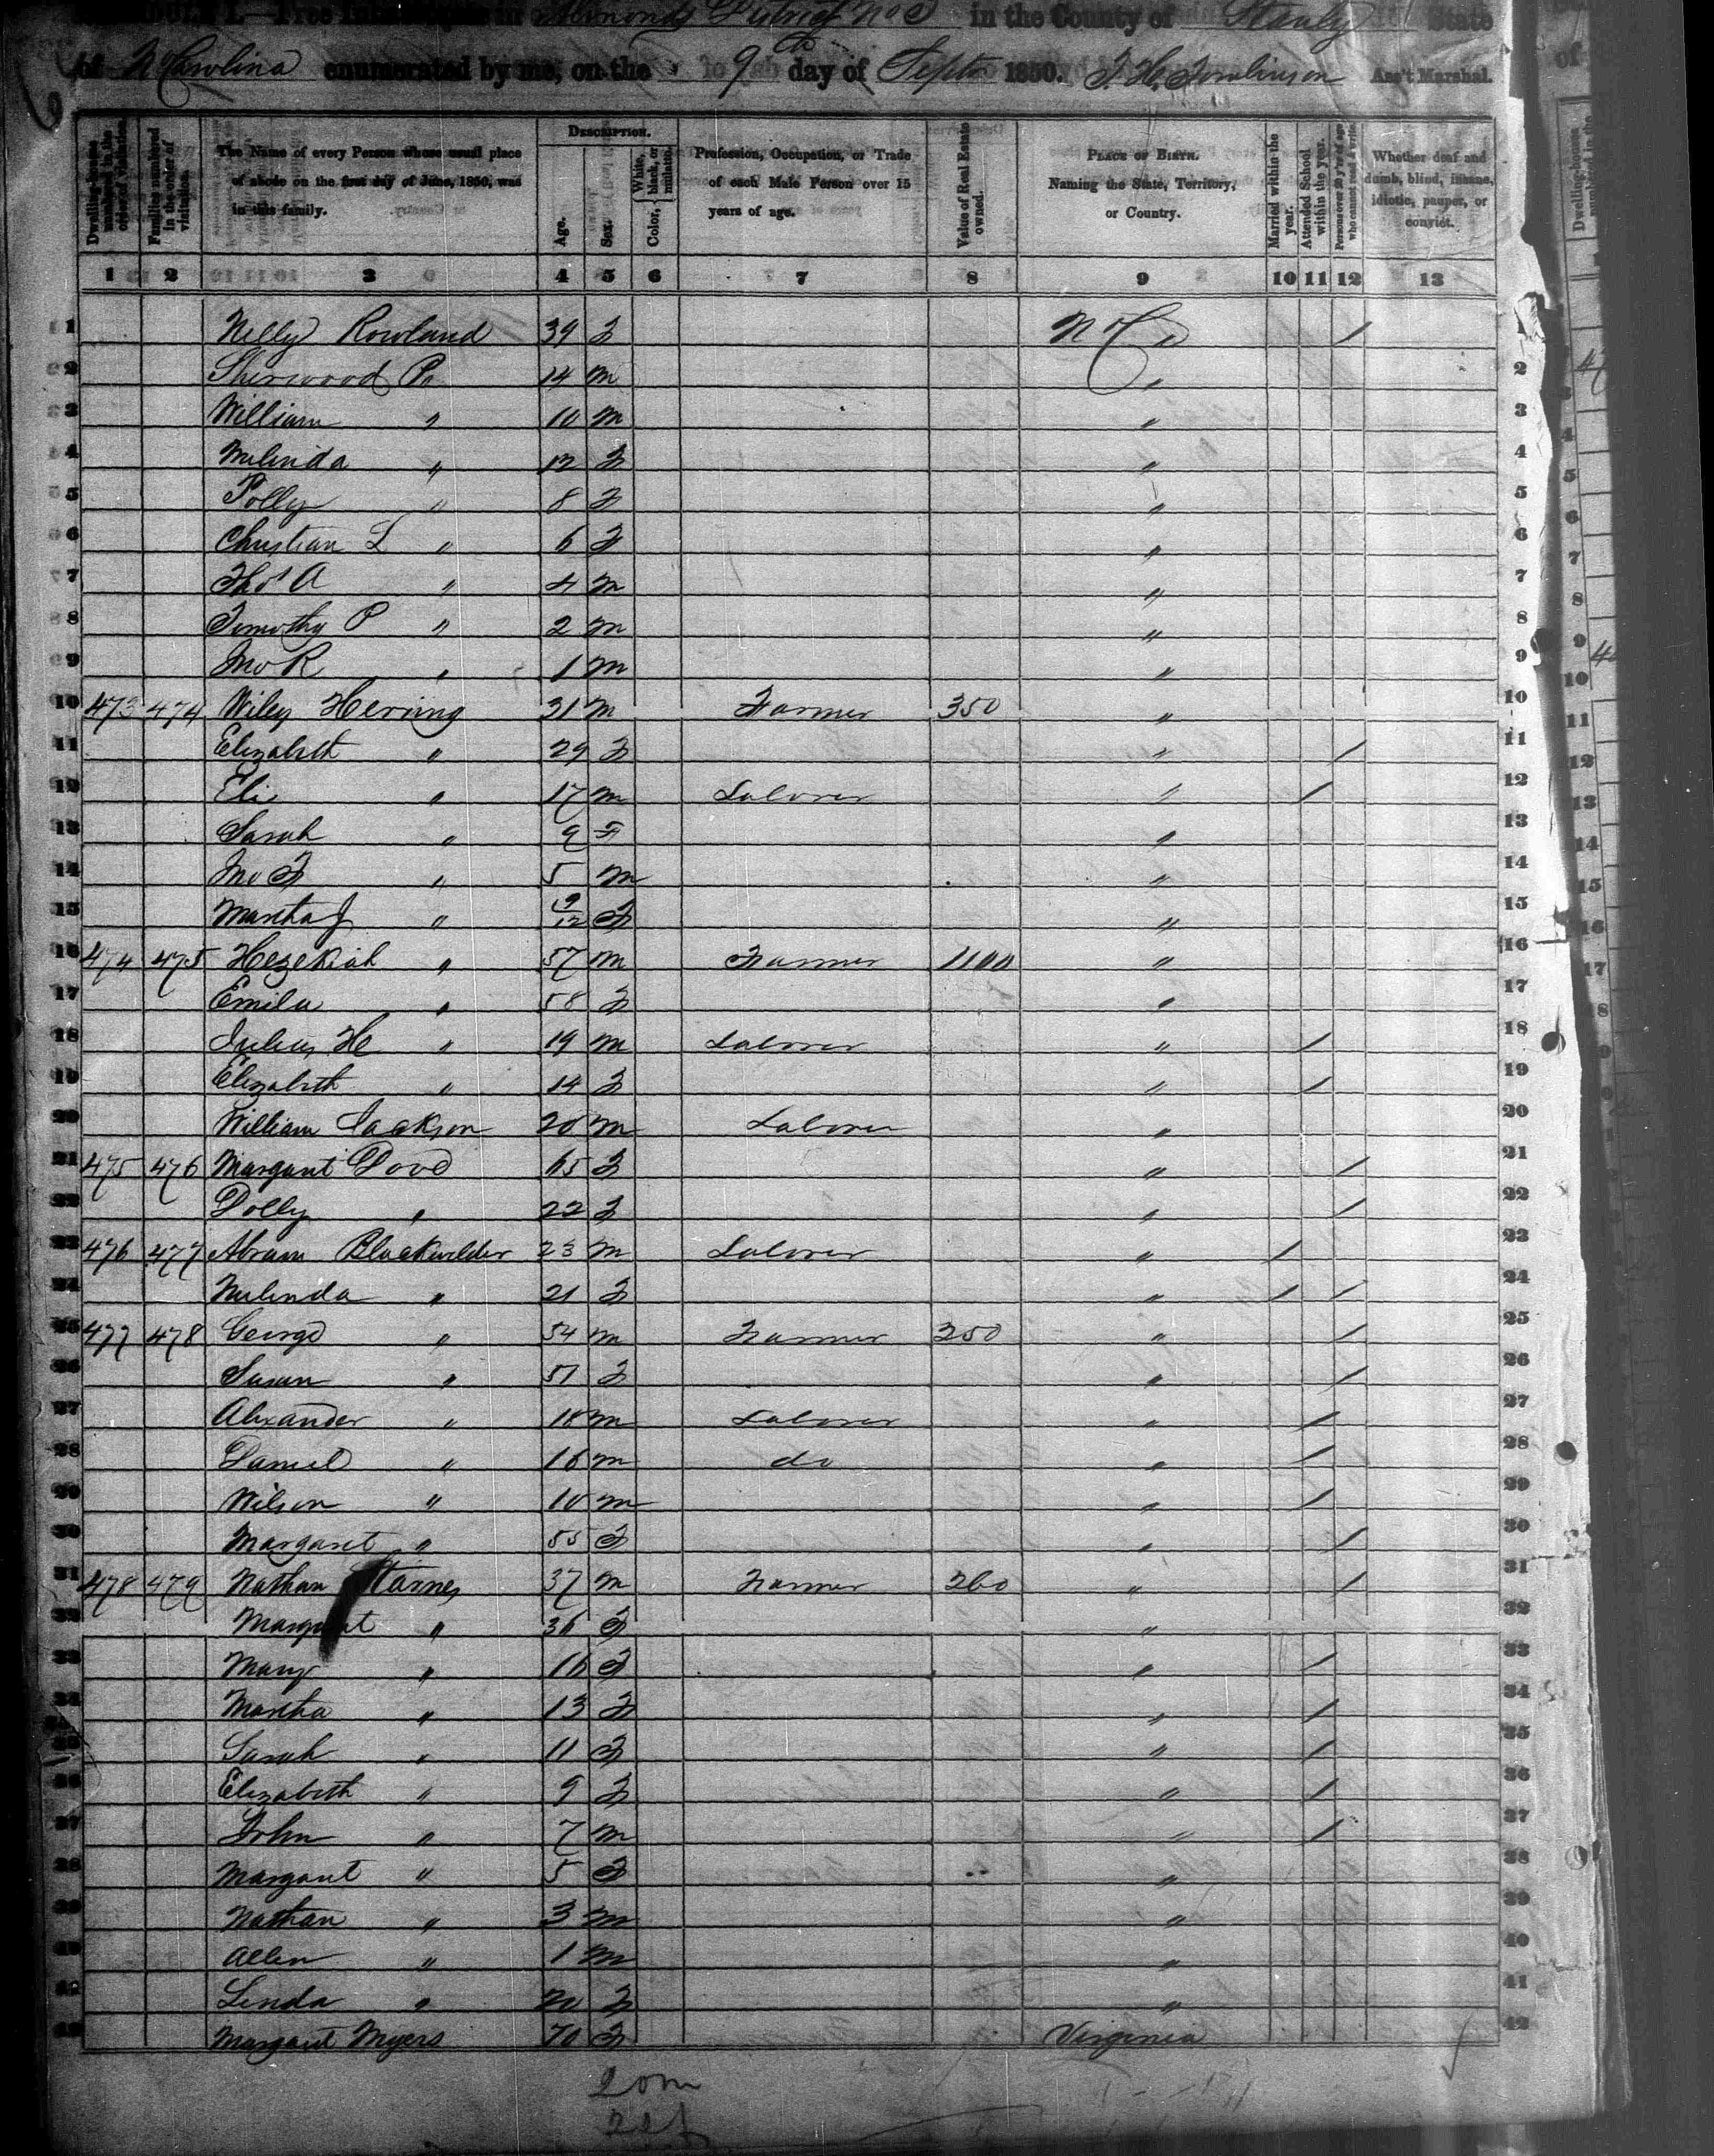 Free Inhabitants in Almonds District No 3 in the County of Stanly State
of N Carolina enumerated by me, on the 9th day of Septr 1850. J. H. Tomlinson Ass't Marshal.
Dwelling-houses numbered in the order of visitation.
Families numbered in the order of visitation.
The Name of every Person whose usual place of abode on the first day of June, 1850, was in this family.
Description.
Age.
Sex.
Color, White, black, or mulatto.
Profession, Occupation, or Trade of each Male Person over 15 years of age.
Value of Real Estate owned.
Place of Birth. Naming the State, Territory, or Country.
Married within the year.
Attended School within the year.
Persons over 20 y'rs of age who cannot read & write.
Whether deaf and dumb, blind, insane, idiotic, pauper, or convict.
1 2 3 4 5 6 7 8 9 10 11 12 13
1 Nelly Rowland 39 F No Ca / 1
2 Sherwood R 14 m " 2
3 William " 10 m " 3
4 Melinda " 12 F " 4
5 Polly " 8 F " 5
6 Christian L " 6 F " 6
7 Thos A " 4 m " 7
8 Timothy P " 2 m " 8
9 Jno R " 1 m " 9
10 473 474 Wiley Herring 31 m Farmer 350 " 10
11 Elizabeth " 29 F " / 11
12 Eli " 17 m Laborer " / 12
13 Sarah " 9 F " 13
14 Jno F " 5 m " 14
15 Martha J " 9/12 F " 15
16 474 475 Hezekiah " 57 m Farmer 1100 " 16
17 Emila " 58 F " 17
18 Julius H " 19 m Laborer " / 18
19 Elizabeth " 14 F " / 19
20 William Jackson 20 m Laborer " 20
21 475 476 Margaret Dove 65 F " / 21
22 Dolly " 22 F " / 22
23 476 477 Abram Blackwelder 23 m Laborer " / 23
24 Melinda " 21 F " / / 24
25 477 478 George " 54 m Farmer 350 " / 25
26 Susan " 51 F " / 26
27 Alexander " 18 m Laborer " / 27
28 Daniel " 16 m do " / 28
29 Wilson " 10 m " / 29
30 Margaret " 55 F " / 30
31 478 479 Nathan Starnes 37 m Farmer 260 " / 31
32 Margaret " 36 F " 32
33 Mary " 16 F " / 33
34 Martha " 13 F " / 34
35 Sarah " 11 F " / 35
36 Elizabeth " 9 F " / 36
37 John " 7 m " / 37
38 Margaret " 5 F " 38
39 Nathan " 3 m " 39
40 Allen " 1 m " 40
41 Linda " 20 F " 41
42 Margaret Myers 70 F Virginia 42
20 m
22 f